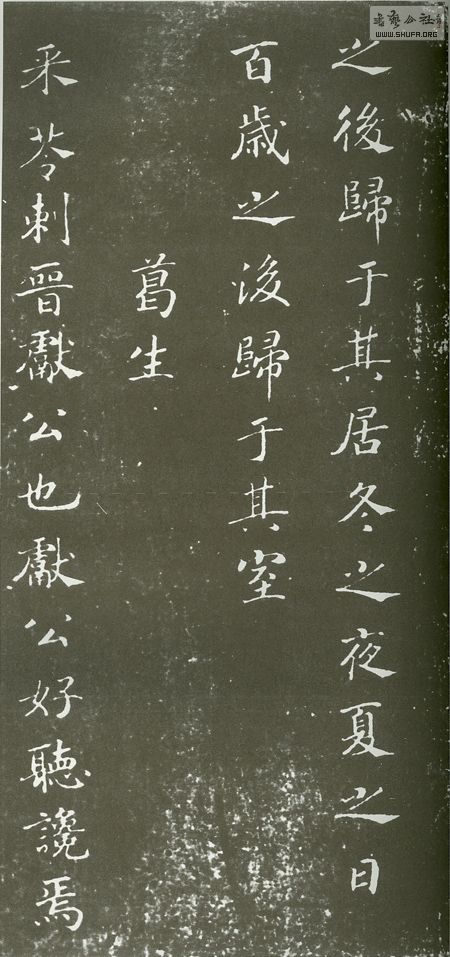 之後歸于其居冬之夜夏之日
百歲之後歸于其室
葛生
采苓刺晉獻公也獻公好聽讒焉
WWW.SHUFA.ORG